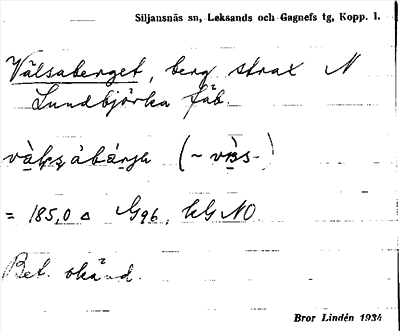 Siljansnäs sn, Leksands och Gagnefs tg, Kopp. l.
Välsaberget, berg strax N
Lundbjörka fäb.
= 185,0 Δ G96, kG NO.
Bet. okänd.
Bror Lindén 1934